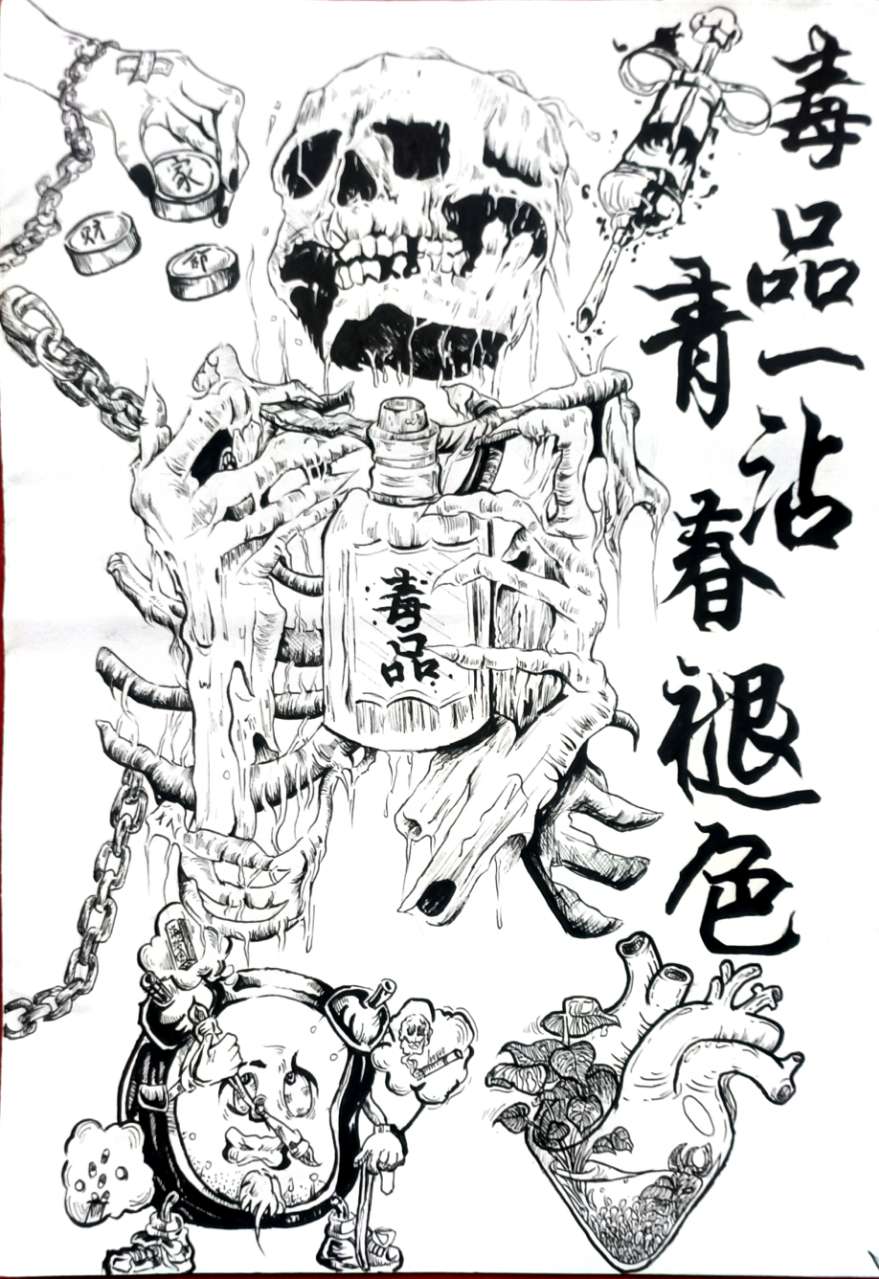 毒品一沾
青春褪色
家
财
命
毒品